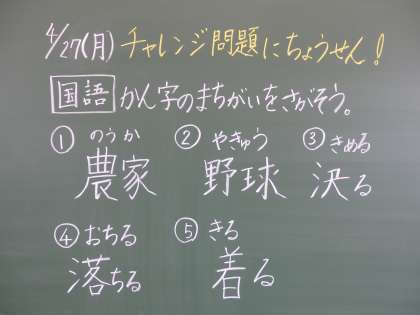 4/27(月) チャレンジ問題にちょうせん!
国語 かん字のまちがいをさがそう。
① のうか ② やきゅう ③ きめる
農家 野球 決る
④ おちる ⑤ きる
落ちる 着る